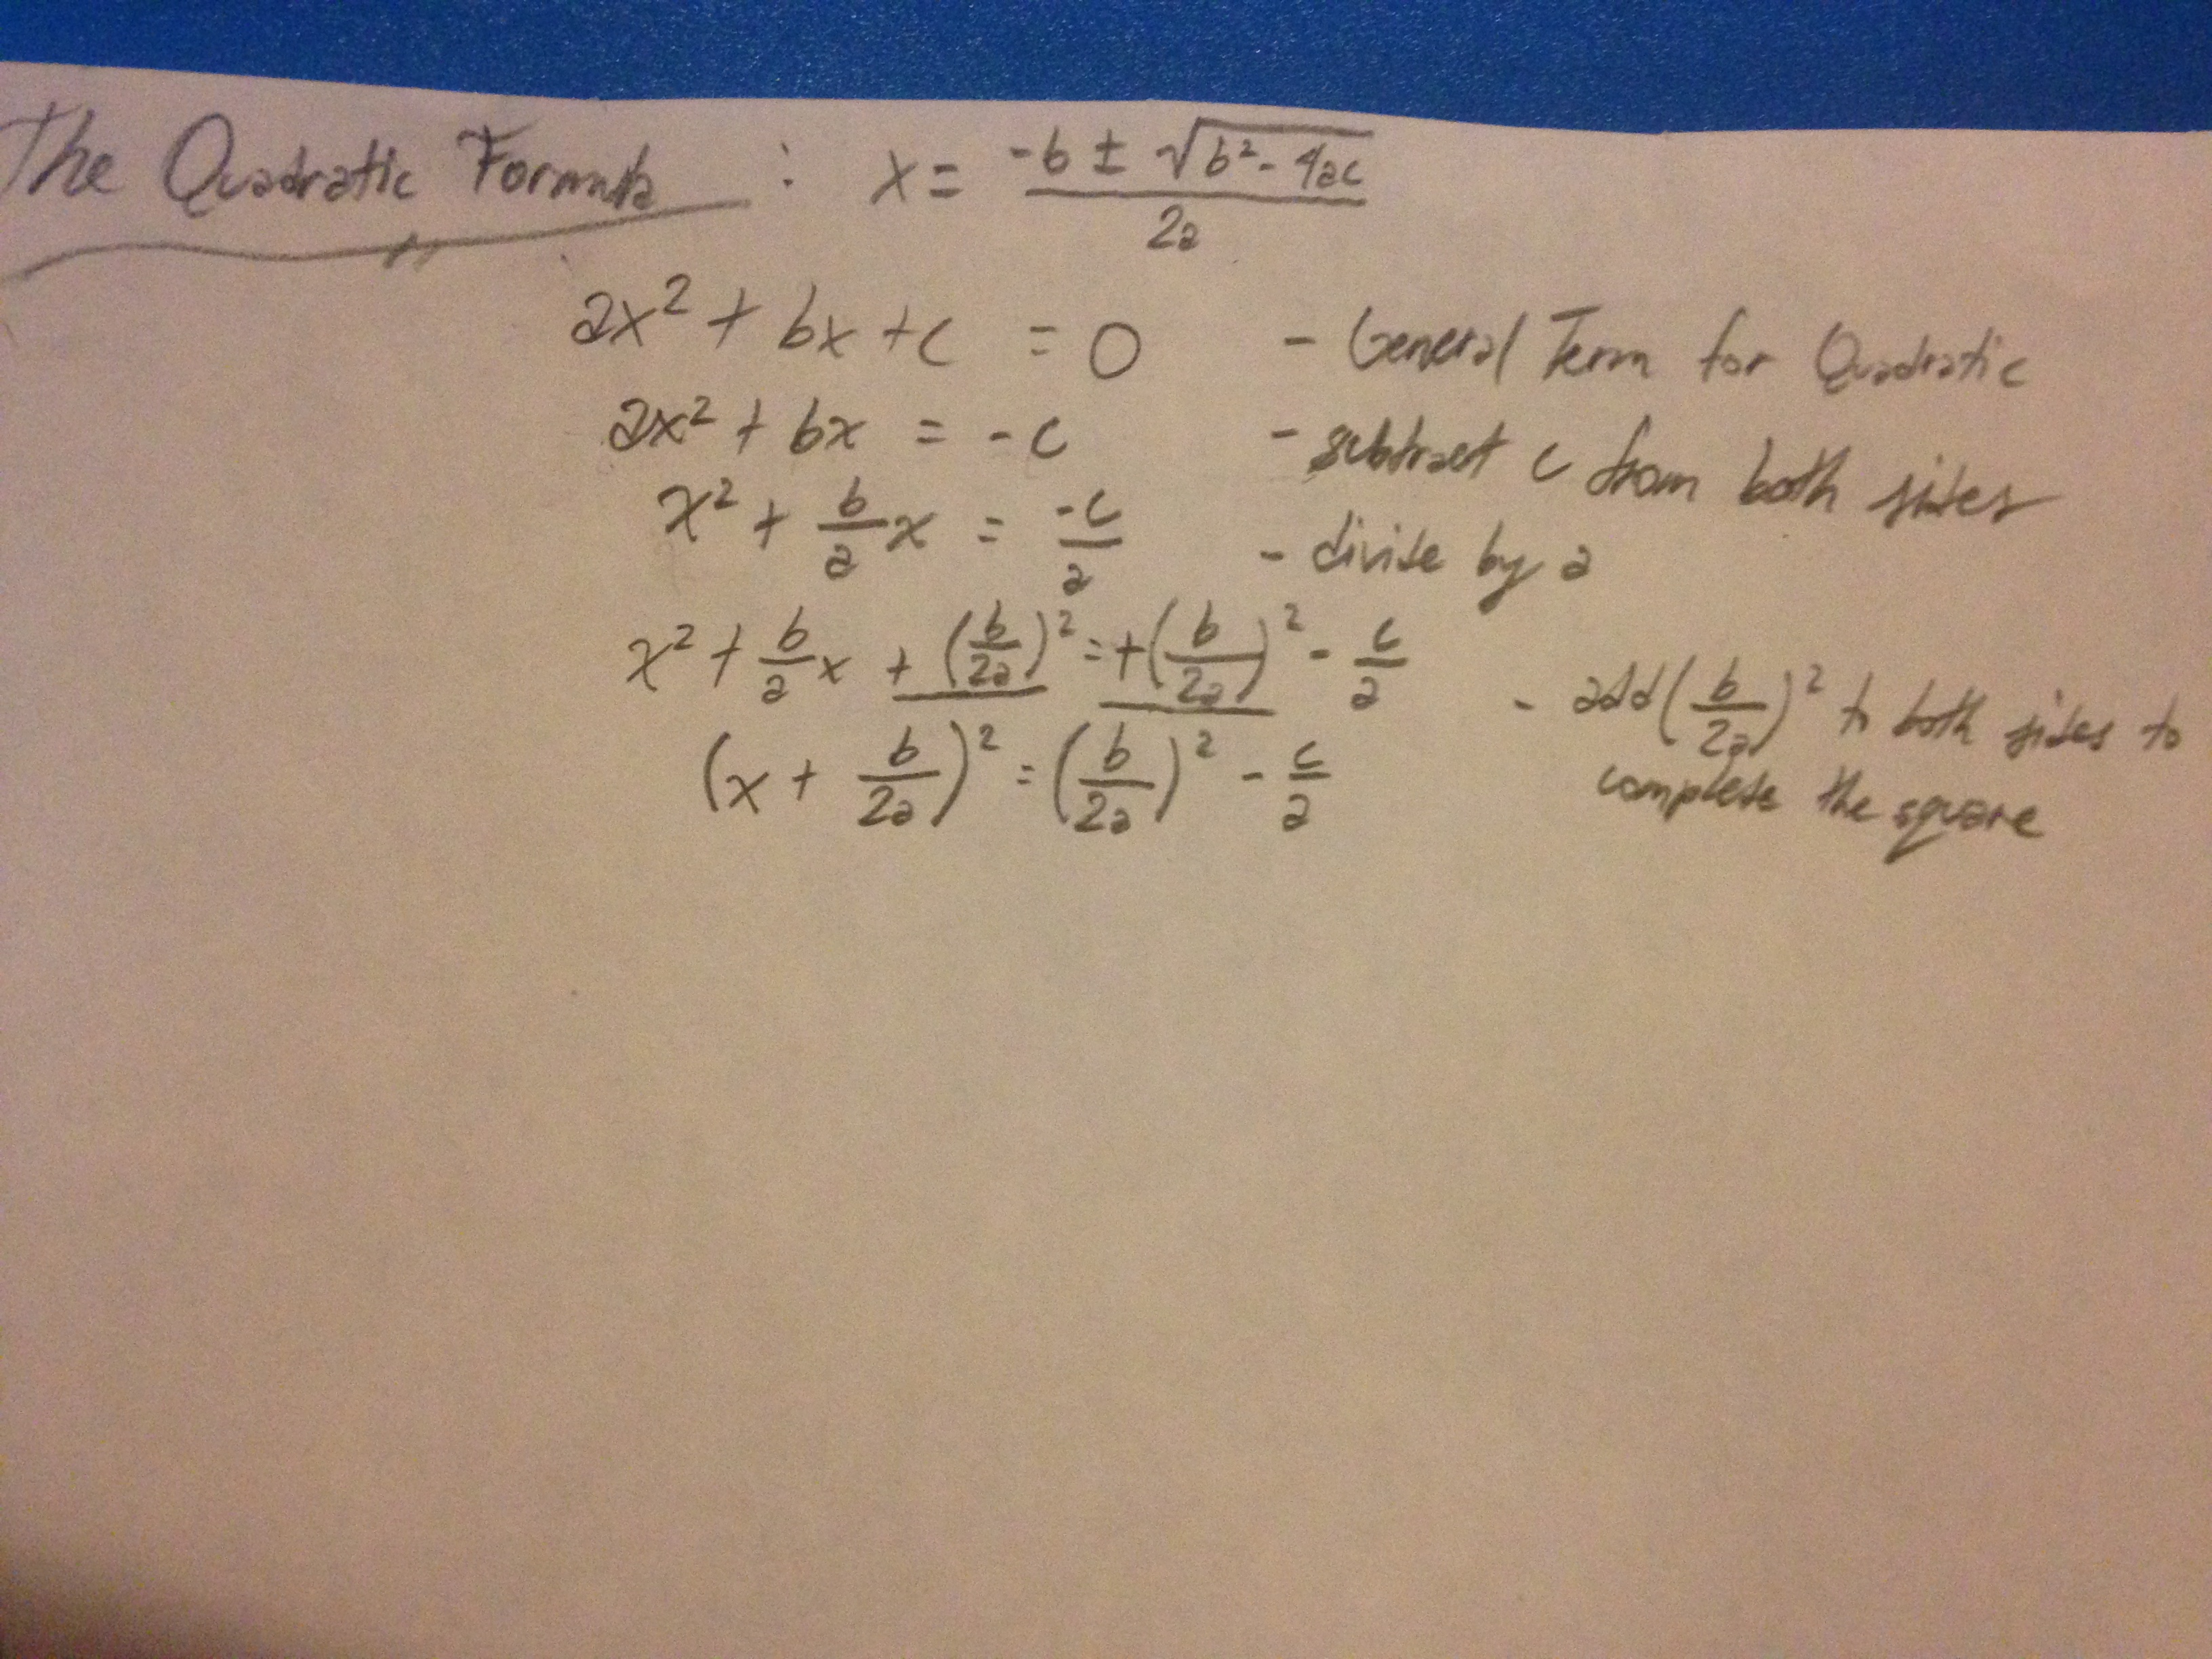 The Quadratic Formula : x = (-b ± √(b² - 4ac)) / 2a
ax² + bx + c = 0 - General Term for Quadratic
ax² + bx = -c - subtract c from both sides
x² + (b/a)x = -c/a - divide by a
x² + (b/a)x + (b/2a)² = +(b/2a)² - c/a - add (b/2a)² to both sides to
complete the square
(x + b/2a)² = (b/2a)² - c/a